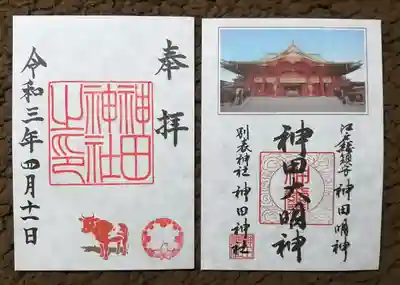 奉拝
神田
神社
之印
令和三年四月十一日
江戸総鎮守 神田明神
神田大明神
別表神社 神田神社